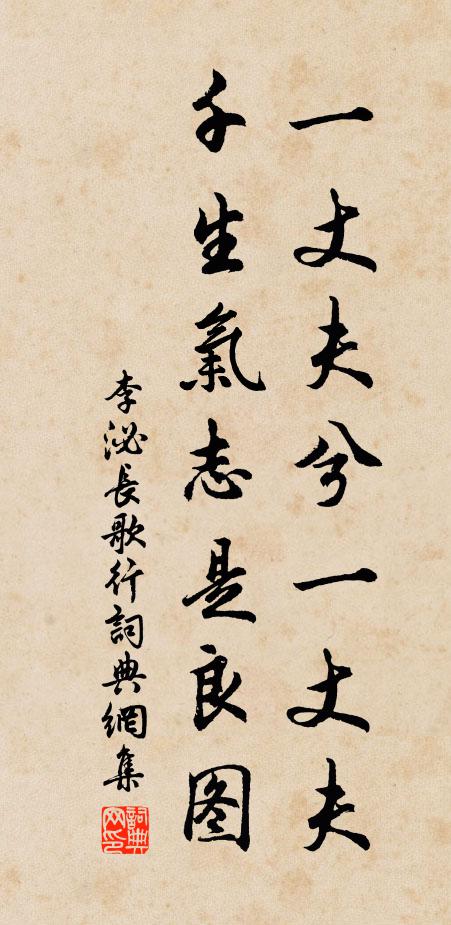 一丈夫兮一丈夫
千生氣志是良图
李泌長歌行詞典網集
詞典網印